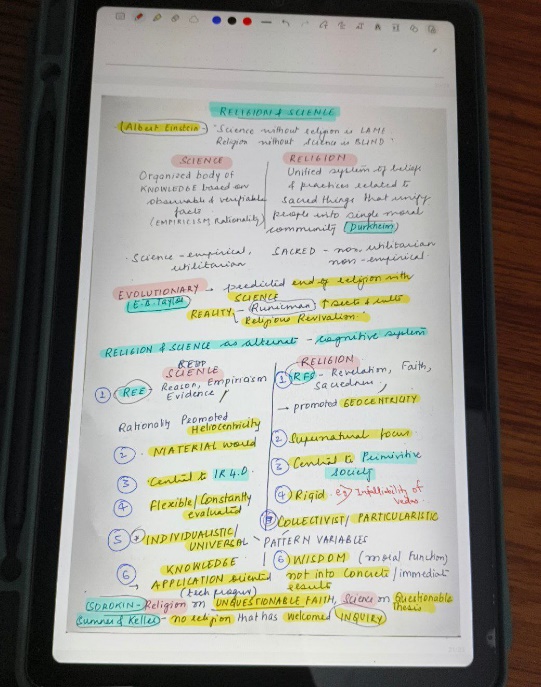 RELIGION & SCIENCE
Albert Einstein - "Science without religion is LAME
Religion without Science is BLIND"
SCIENCE
Organized body of
KNOWLEDGE based on
observable & verifiable
facts
(EMPIRICISM Rationality)
RELIGION
Unified system of beliefs
& practices related to
sacred things that unify
people into single moral
community (Durkheim)
Science - empirical,
utilitarian
SACRED - non utilitarian
non-empirical
EVOLUTIONARY → predicted end of religion with
E.B. Taylor SCIENCE
REALITY - Runciman ↑ sects & cults
Religious Revivalion
RELIGION & SCIENCE as alternat - cognitive system
SCIENCE
① REE - Reason, Empiricism
Evidence
Rationally Promoted
Heliocentricity
② MATERIAL world
③ Central to IR 4.0
④ Flexible/Constantly
evaluated
⑤ → INDIVIDUALISTIC/
UNIVERSAL
⑥ KNOWLEDGE
→ APPLICATION oriented
(tech progress)
RELIGION
① RFS - Revelation, Faith,
Sacredness
→ promoted GEOCENTRICITY
② Supernatural focus
③ Central to Primivitive
society
④ Rigid eg> Infallibility of
vedas
COLLECTIVIST/ PARTICULARISTIC
PATTERN VARIABLES
⑥ WISDOM (moral function)
not into concrete/immediate
results
SOROKIN - Religion on UNQUESTIONABLE FAITH, Science on Questionable
Thesis
Sumner & Keller - no religion that has welcomed INQUIRY